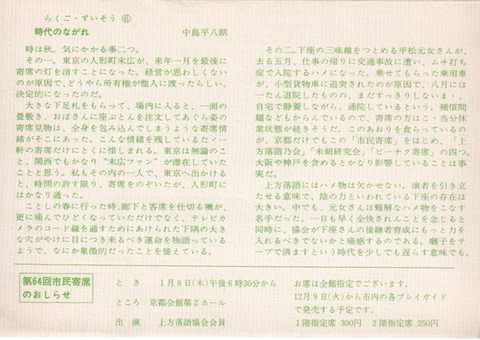 らくご・ずいそう ⑥
時代のながれ　　中島平八朗
時は秋。気にかかる事二つ。
その一。東京の人形町末広が、来年一月を最後に
寄席の灯を消すことになった。経営が思わしくない
のが原因で、どうやら所有権が他人に渡ったらしい。
決定的になったのだ。
大きな下足札をもらって、場内に入ると、一面の
畳敷き、おばさんに座ぶとんを注文してあぐら姿の
寄席見物は、全身を包み込んでしまうような寄席情
緒がそこにあった。こんな情緒を残してくれるたゞ一
軒の寄席だけにとくに惜しまれる。東京は無論のこ
と、関西でもかなり〝末広ファン〟が潜在していた
ことと思う。私もその内の一人で、東京へ出かける
と、時間の許す限り、寄席をのぞいたが、人形町に
はかなり通った。
ことしの春に行った時、廊下と客席を仕切る機が、
更に痛んでひどくなっていただけでなく、テレビカ
メラのコード線を通すためにあけられた下隅の大き
な穴がやけに目につき来るべき運命を物語っている
ようで、なにか象徴的だったことを憶えている。
その二。下座の三味線をつとめる平松元女さんが、
去る五月、仕事の帰りに交通事故に遭い、ムチ打ち
症で入院するハメになった。乗せてもらった乗用車
が、小型貨物車に追突されたのが原因で、八月には
一たん退院したものの、まだすっきりしないまゝ、
自宅で静養しながら、通院しているという。補償問
題などもからんでいるので、寄席の方はこゝ当分休
業状態が続きそうだ。このあおりを食らっているの
が、京都だけでもこの「市民寄席」をはじめ、「上
方落語乃会」「米朝研究会」「ビーチク寄席」の四つ。
大阪や神戸を含めるとかなり影響していることは事
実だ。
上方落語にはハメ物は欠かせない。演者を引き立
たせる意味で、陰の力といわれている下座の存在は
大きい。中でも、元女さんは難解なハメ物をこなす
名手だった。一日も早く全快されんことを念じると
同時に、協会が下座さんの後継者育成にもっと力を
入れるべきでないかと痛感するのである。囃子をテ
ープで済ますという時代を少しでも遅らす意味でも。
第64回市民寄席
のおしらせ
とき　1月8日(木)午後6時30分から
ところ　京都会館第2ホール
出演　上方落語協会会員
お席は全館指定でございます。
12月9日(火)から市内の各プレイガイド
で発売する予定です。
1階指定席 300円　2階指定席 250円